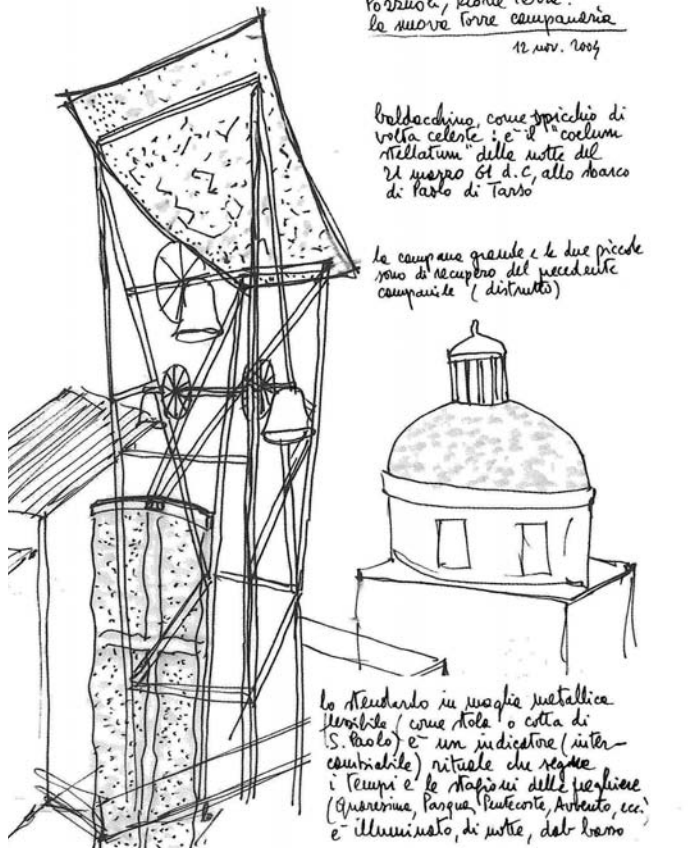 Pozzuoli, Rione Terra:
la nuova Torre campanaria
12 nov. 2004
baldacchino, come spicchio di
volta celeste: è il "coelum
stellatum" della notte del
21 marzo 61 d.C, allo sbarco
di Paolo di Tarso
la campana grande e le due piccole
sono di recupero del precedente
campanile (distrutto)
lo stendardo in maglia metallica
flessibile (come stola o cotta di
S. Paolo) è un indicatore (inter-
cambiabile) rituale che segna
i tempi e le stagioni delle preghiere
(Quaresima, Pasqua, Pentecoste, Avvento, ecc.)
è illuminato, di notte, dal basso